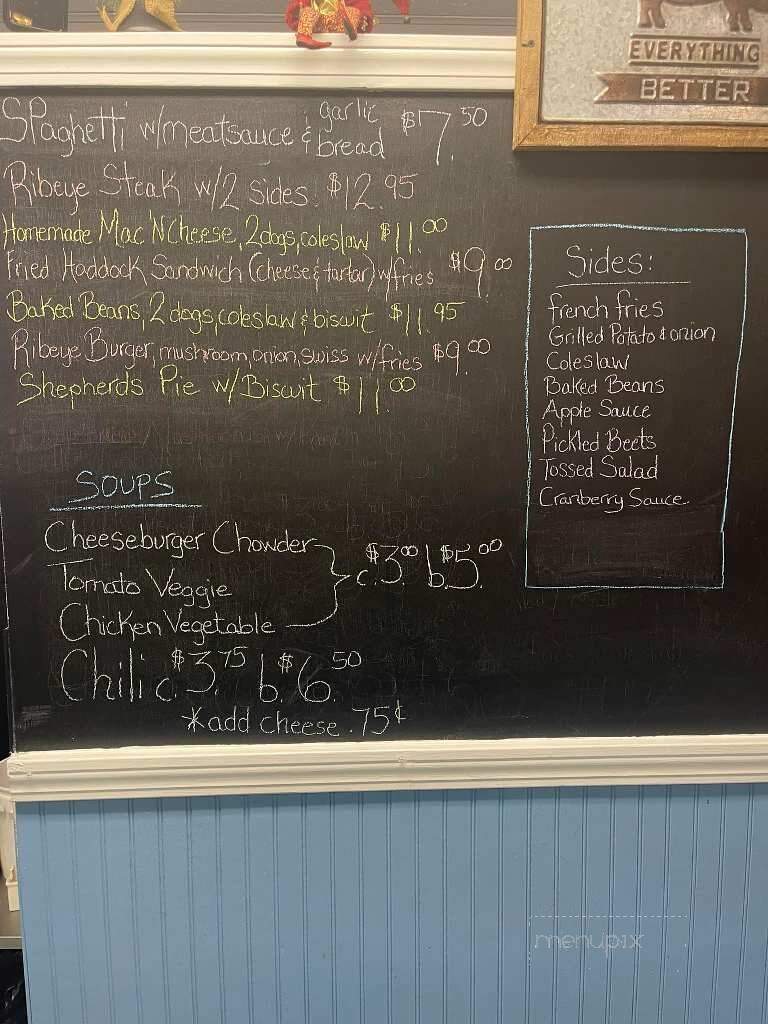 EVERYTHING
BETTER
SPaghetti w/meatsauce & garlic bread $7.50
Ribeye Steak w/2 sides. $12.95
Homemade Mac 'N Cheese, 2dogs, coleslaw $11.00
Fried Haddock Sandwich (cheese & tartar) w/fries $9.00
Baked Beans, 2 dogs, coleslaw & biscuit $11.95
Ribeye Burger, mushroom, onion, swiss w/fries $9.00
Shepherds Pie w/Biscuit $11.00
Sides:
french fries
Grilled Potato & onion
Coleslaw
Baked Beans
Apple Sauce
Pickled Beets
Tossed Salad
Cranberry Sauce
SOUPS
Cheeseburger Chowder
Tomato Veggie
Chicken Vegetable
c.$3.00 b.$5.00
Chili c.$3.75 b.$6.50
*add cheese .75¢
menupix